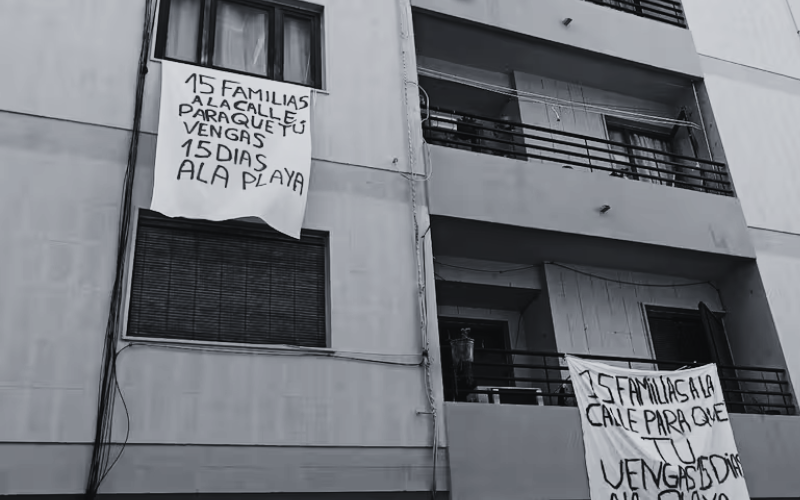 15 FAMILIAS
A LA CALLE
PARA QUE TÚ
VENGAS
15 DIAS
ALA PLAYA
15 FAMILIAS A LA
CALLE PARA QUE
TU
VENGAS 15 DIAS
ALA PLAYA